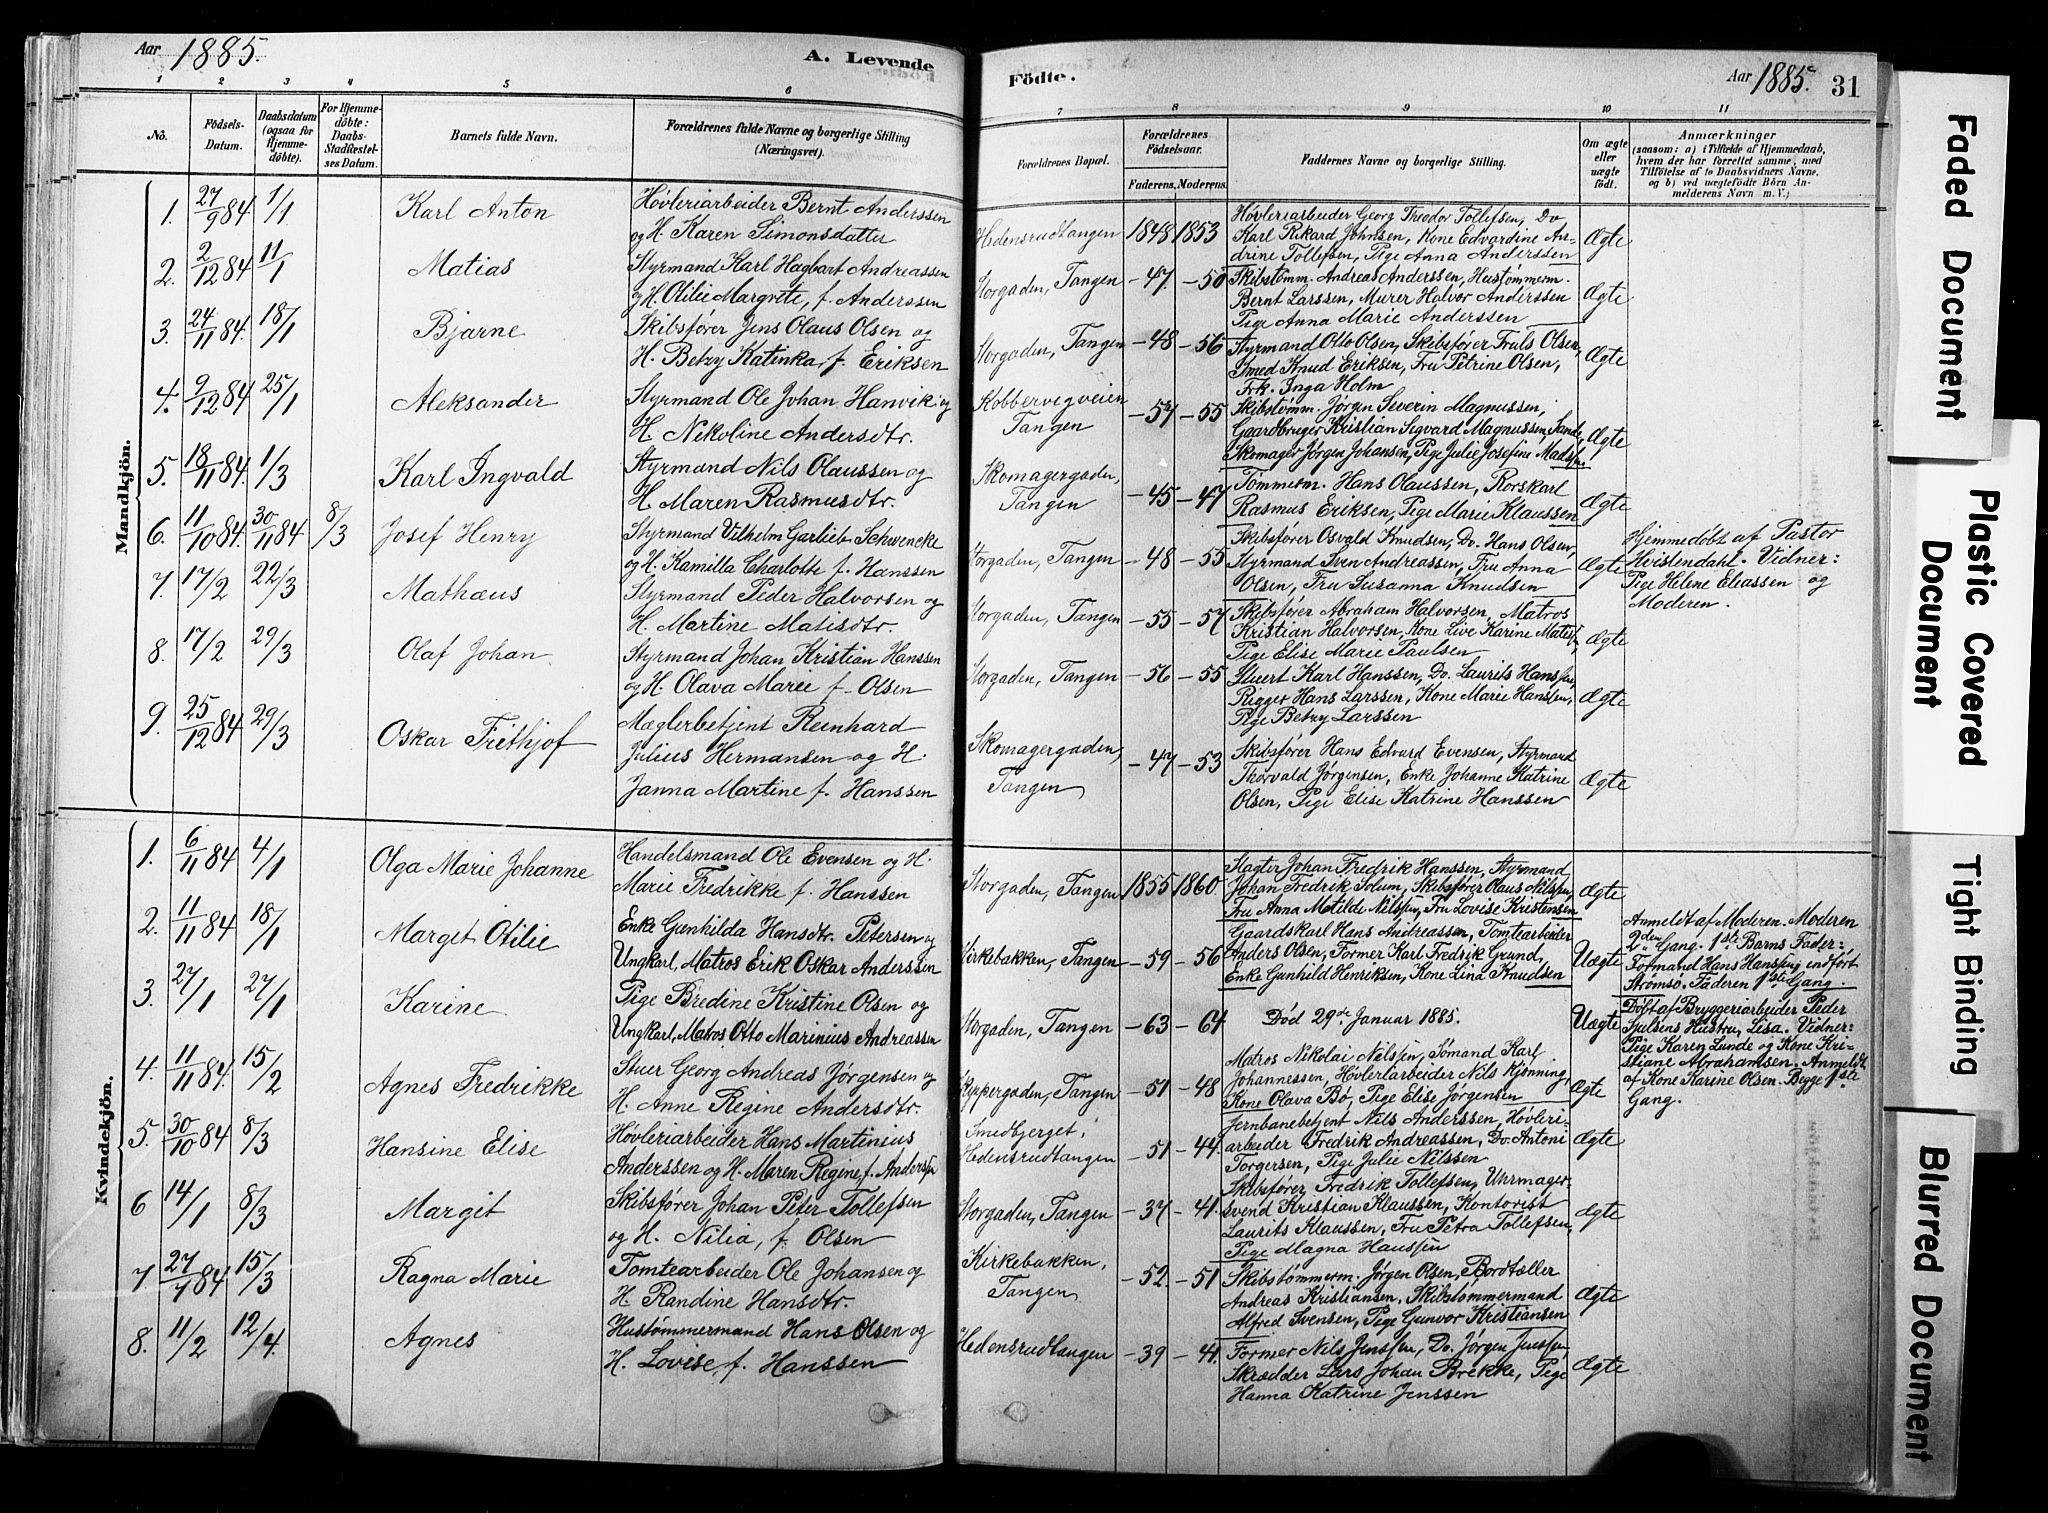 Aar 1885.
A. Levende
1 2 3 4 5 6
No.
Födsels-
Datum.
Daabsdatum
(ogsaa for
Hjemme-
döbte).
For Hjemme-
döbte:
Daabs-
Stadfæstel-
ses Datum.
Barnets fulde Navn.
Forældrenes fulde Navne og borgerlige Stilling
(Næringsvei).
Mandkjön.
1. 27/9 84 1/1 Karl Anton
Høvleriarbeider Bernt Anderssen
og H. Karen Simonsdatter
2. 2/12 84 11/1 Matias
Styrmand Karl Hagbart Andreassen
og H. Otilie Margrete, f. Anderssen
3. 24/11 84. 18/1 Bjarne
Skibsfører Jens Olaus Olsen og
H. Betzy Katinka, f. Eriksen
4. 9/12 84 25/1 Aleksander
Styrmand Ole Johan Hanvik og
H. Nekoline Andersdtr.
5. 18/11 84. 1/3 Karl Ingvald
Styrmand Nils Olaussen og
H. Maren Rasmusdtr.
6. 11/10 84. 30/11 84 8/3 Josef Henry
Styrmand Vilhelm Garlieb Schwencke
og H. Kamilla Charlotte f. Hanssen
7. 17/2 22/3 Mathæus
Styrmand Peder Halvorsen og
H. Martine Matisdtr.
8. 17/2 29/3 Olaf Johan
Styrmand Johan Kristian Hanssen
og H. Olava Marie f. Olsen
9. 25/12 84 29/3 Oskar Frithjof
Mæglerbetjent Reinhard
Julius Hermansen og H.
Janna Martine f. Hanssen
Kvindekjön.
1. 6/11 84 4/1 Olga Marie Johanne
Handelsmand Ole Evensen og H.
Marie Fredrikke f. Hanssen
2. 11/11 84 18/1 Margit Otilie
Enke Gunhilda Hansdtr. Petersen og
Ungkarl, Matros Erik Oskar Anderssen
3. 27/1 27/1 Karine
Pige Bredine Kristine Olsen og
Ungkarl, Matros Otto Marinius Andreassen
4. 11/11 84. 15/2 Agnes Fredrikke
Stuer Georg Andreas Jørgensen og
H. Anne Regine Andersdtr.
5. 30/10 84 8/3 Hansine Elise
Høvleriarbeider Hans Martinius
Anderssen og H. Maren Regine f. Anderssen
6 14/1 8/3 Margit
Skibsfører Johan Peter Tollefsen
og H. Nilia, f. Olsen
7. 27/7 84 15/3 Ragna Marie
Tomtearbeider Ole Johansen og
H. Randine Hansdtr.
8. 11/2 12/4. Agnes
Hustømmermand Hans Olsen og
H. Lovise, f. Hanssen
Födte.
Aar 1885. 31
7 8 9 10 11
Forældrenes Bopæl.
Forældrenes
Födselsaar.
Faderens. Moderens.
Faddernes Navne og borgerlige Stilling.
Om ægte
eller
uægte
födt.
Anmærkninger
(saasom: a) i Tilfælde af Hjemmedaab,
hvem der har forrettet samme, med
Tilföielse af to Daabsvidners Navne,
og b) ved uægtefödte Börn An-
melderens Navn m. V.)
Hedensrudtangen 1848 1853 Ægte
Høvleriarbeider Georg Theodor Tollefsen, Do
Karl Rikard Johnsen, Kone Edvardine An-
drine Tollefsen, Pige Anna Anderssen
Storgaden, Tangen -47. -50 Ægte
Skibstømm. Andreas Anderssen, Hustømmerm.
Bernt Larssen, Murer Halvor Anderssen
Pige Anna Marie Anderssen
Storgaden, Tangen -48 -56 Ægte
Styrmand Otto Olsen, Skibsfører Truls Olsen,
Smed Knud Eriksen, Fru Petrine Olsen,
Frk. Inga Holm
Kobbervegveien
Tangen -57 -55 Ægte
Skibstømm. Jørgen Severin Magnussen,
Gaardbruger Kristian Sigvard Magnussen, Sande,
Skomager Jørgen Johansen, Pige Julie Josefine Madssen.
Skomagergaden,
Tangen -45 -47 Ægte
Tommerm. Hans Olaussen, Rorskarl
Rasmus Eriksen, Pige Marie Klaussen
Storgaden, Tangen -48 -55 Ægte
Skibsfører Osvald Knudsen, Do. Hans Olsen,
Styrmand Sven Andreassen, Fru Anna
Olsen, Fru Susanna Knudsen
Hjemmedøbt af Pastor
Hvistendahl. Vidner:
Pige Helene Eliassen og
Moderen.
Storgaden, Tangen -55 -57 Ægte
Skibsfører Abraham Halvorsen, Matros
Kristian Halvorsen, Kone Live Karine Matiss.,
Pige Elise Marie Paulsen
Storgaden, Tangen -56 -55 Ægte
Stuert Karl Hanssen, Do. Laurits Hanssen,
Rigger Hans Larssen, Kone Marie Hanssen,
Pige Betzy Larssen
Skomagergaden,
Tangen -47 -53 Ægte
Skibsfører Hans Edvard Evensen, Styrmand
Thorvald Jørgensen, Enke Johanne Katrine
Olsen, Pige Elise Katrine Hanssen
Storgaden, Tangen 1855 1860 Ægte
Slagter Johan Fredrik Hanssen, Styrmand
Johan Fredrik Solum, Skibsfører Olaus Nilssen,
Fru Anna Matilde Nilssen, Fru Lovise Kristensen
Kirkebakken, Tangen -59 -56 Uægte
Gaardskarl Hans Andreassen, Tomtearbeider
Anders Olsen, Former Karl Fredrik Grund,
Enke Gunhild Henriksen, Kone Lina Knudsen
Anmeldt af Moderen. Moderen
2den Gang. 1ste Barns Fader:
Formand Hans Hanssen, indført
Strømsø. Faderen 1ste Gang.
Storgaden, Tangen -63 -64 Uægte
Død 29de Januar 1885.
Døbt af Bryggeriarbeider Peder
Julsens Hustru, Lisa. Vidner:
Pige Karen Lunde og Kone Kri-
stiane Abrahamsen. Anmeldt
af Kone Karine Olsen. Begge 1ste
Gang.
Skippergaden, Tangen -51 -48 Ægte
Matros Nikolai Nilssen, Sømand Karl
Johannessen, Høvleriarbeider Nils Kjønning,
Kone Olava Bø, Pige Elise Jørgensen
Smedbjerget,
Hedensrudtangen -51 -44. Ægte
Jernbanebetjent Nils Anderssen, Høvleri-
arbeider Fredrik Andreassen, Do. Antoni
Torgersen, Pige Julie Nilssen
Storgaden, Tangen -37 -41. Ægte
Skibsfører Fredrik Tollefsen, Uhrmager-
svend Kristian Klaussen, Kontorist
Laurits Klaussen, Fru Petra Tollefsen,
Pige Magna Hanssen
Kirkebakken,
Tangen -52. -51 Ægte
Skibstømmerm. Jørgen Olsen, Bordtæller
Andreas Kristiansen, Skibstømmermand
Alfred Svensen, Pige Gunvor Kristiansen
Hedensrudtangen -39 -41. Ægte
Former Nils Jenssen, Do. Jørgen Jenssen,
Skrædder Lars Johan Brekke, Pige
Hanna Katrine Jenssen
Faded Document
Plastic Covered
Document
Tight Binding
Blurred Document